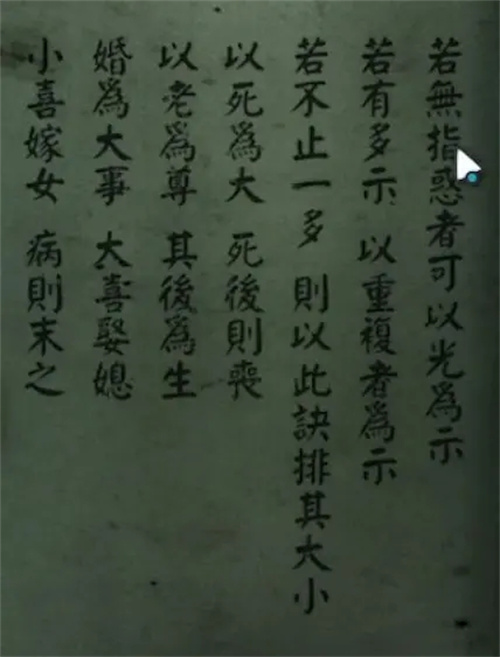 若無指惑者可以光為示
若有多示 以重複者為示
若不止一多 則以此訣排其大小
以死為大 死後則喪
以老為尊 其後為生
婚為大事 大喜娶媳
小喜嫁女 病則末之